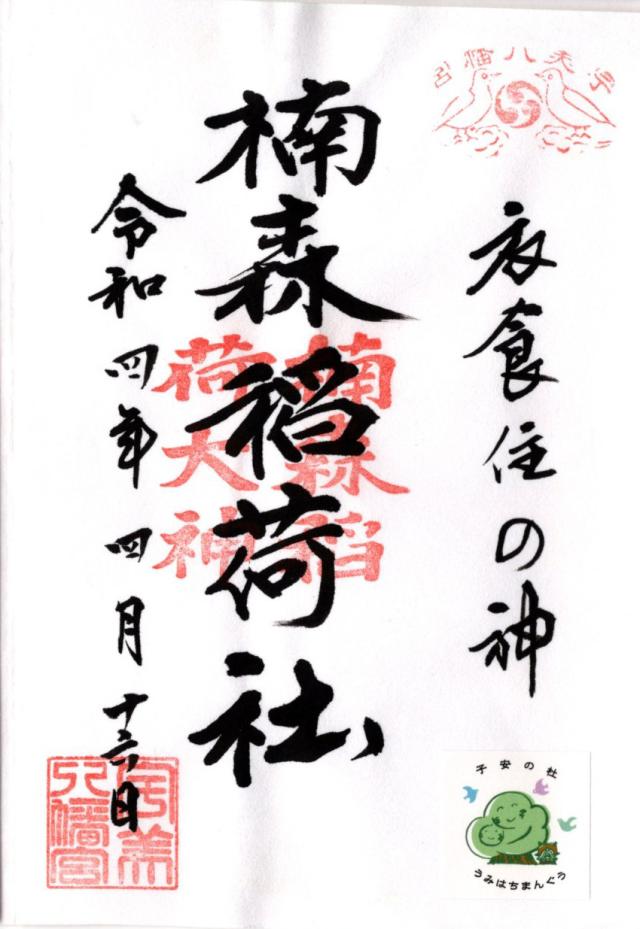 宇美八幡宮
衣食住の神
楠森稲荷社
楠森稲
荷大神
令和四年四月十六日
宇美
八幡宮
子安の杜
うみはちまんぐう